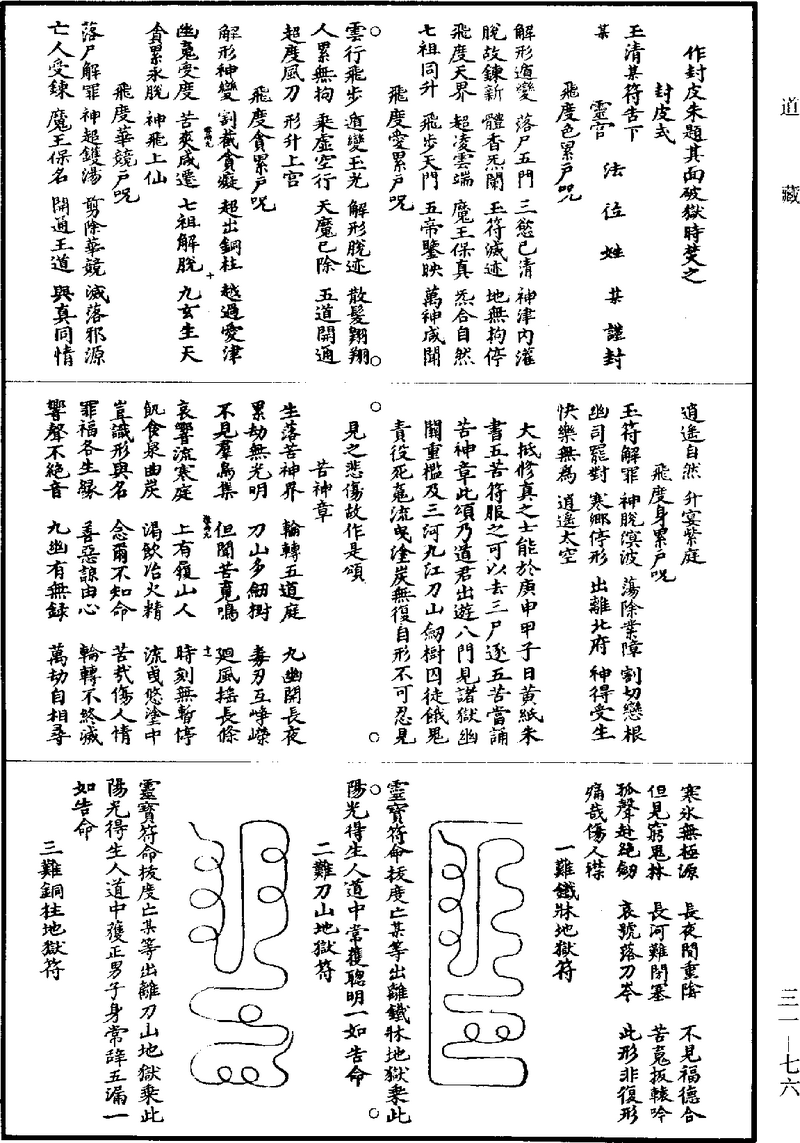 道藏
三一—七六
作封皮朱題其面破獄時焚之
封皮式
玉清某符告下
某　靈官　法位姓某謹封
飛度色累尸呪
解形遁變　落尸五門　三慾已清　神津內灌
脫故鍊新　體香炁蘭　玉符滅迹　地無拘停
飛度天界　超凌雲端　魔王保真　炁合自然
七祖同升　飛步天門　五帝鑒映　萬神咸聞
飛度愛累尸呪
雲行飛步　遁變玉光　解形脫迹　散髮翱翔
人累無拘　乘虛空行　天魔已除　五道開通
超度風刀　形升上宮
飛度貪累尸呪
解形神變　割截貪癡　超出銅柱　越過愛津
幽魂受度　苦爽咸遷　七祖解脫　九玄生天
貪累永脫　神飛上仙
飛度華競尸呪
落尸解罪　神超鑊湯　剪除華競　滅落邪源
亡人受鍊　魔王保名　開通王道　與真同情
逍遙自然　升宴紫庭
飛度身累尸呪
玉符解罪　神脫溟波　蕩除業障　割切戀根
幽司罷對　寒鄉停形　出離北府　神得受生
快樂無為　逍遙太空
大抵修真之士能於庚申甲子日黃紙朱
書五苦符服之可以去三尸逐五苦當誦
苦神章此頌乃道君出遊八門見諸獄幽
關重檻及三河九江刀山劒樹囚徒餓鬼
責役死魂流曳塗炭無復自形不可忍見
見之悲傷故作是頌
苦神章
生落苦神界　輪轉五道庭　九幽開長夜
累劫無光明　刀山多劒樹　毒刃互崢嶸
不見羣鳥集　但聞苦魂鳴　廻風搖長條
哀響流寒庭　上有履山人　時刻無暫停
飢食泉曲炭　渴飲冶火精　流曳悠塗中
豈識形與名　念爾不知命　苦哉傷人情
罪福各生緣　善惡諒由心　輪轉不終滅
響聲不絕音　九幽有無録　萬劫自相尋
寒氷無極源　長夜閉重陰　不見福德合
但見窮鬼林　長河難閉塞　苦魂扳轅吟
孤聲赴絕劒　哀號落刀岑　此形非復形
痛哉傷人襟
一難鐵牀地獄符
靈寶符命拔度亡某等出離鐵牀地獄乘此
陽光得生人道中常獲聰明一如告命
二難刀山地獄符
靈寶符命拔度亡某等出離刀山地獄乘此
陽光得生人道中獲正男子身常降五漏一
如告命
三難銅柱地獄符